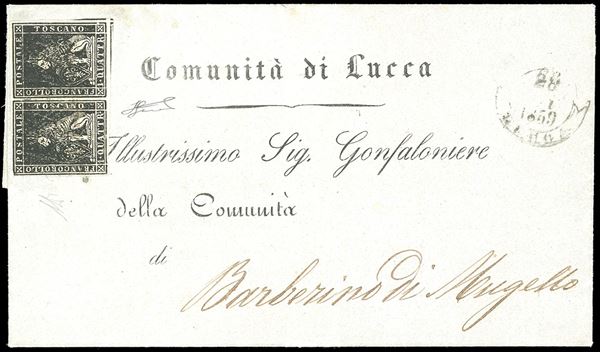 TOSCANO
POSTALE
FRANCOBOLLO
QUATTR
TOSCANO
POSTALE
FRANCOBOLLO
QUATTR
Comunità di Lucca
1859
Illustrissimo Sig. Gonfaloniere
della Comunità
di
Barberino di Mugello